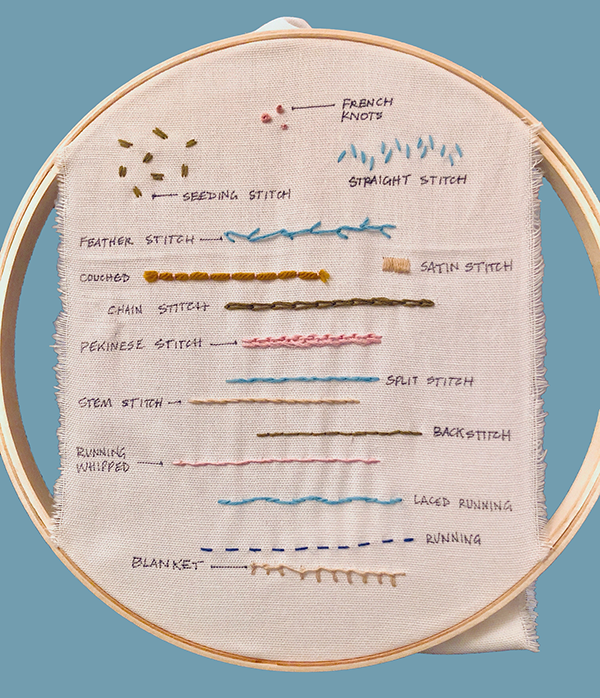 FRENCH
KNOTS
STRAIGHT STITCH
SEEDING STITCH
FEATHER STITCH
SATIN STITCH
COUCHED
CHAIN STITCH
PEKINESE STITCH
SPLIT STITCH
STEM STITCH
BACKSTITCH
RUNNING
WHIPPED
LACED RUNNING
RUNNING
BLANKET